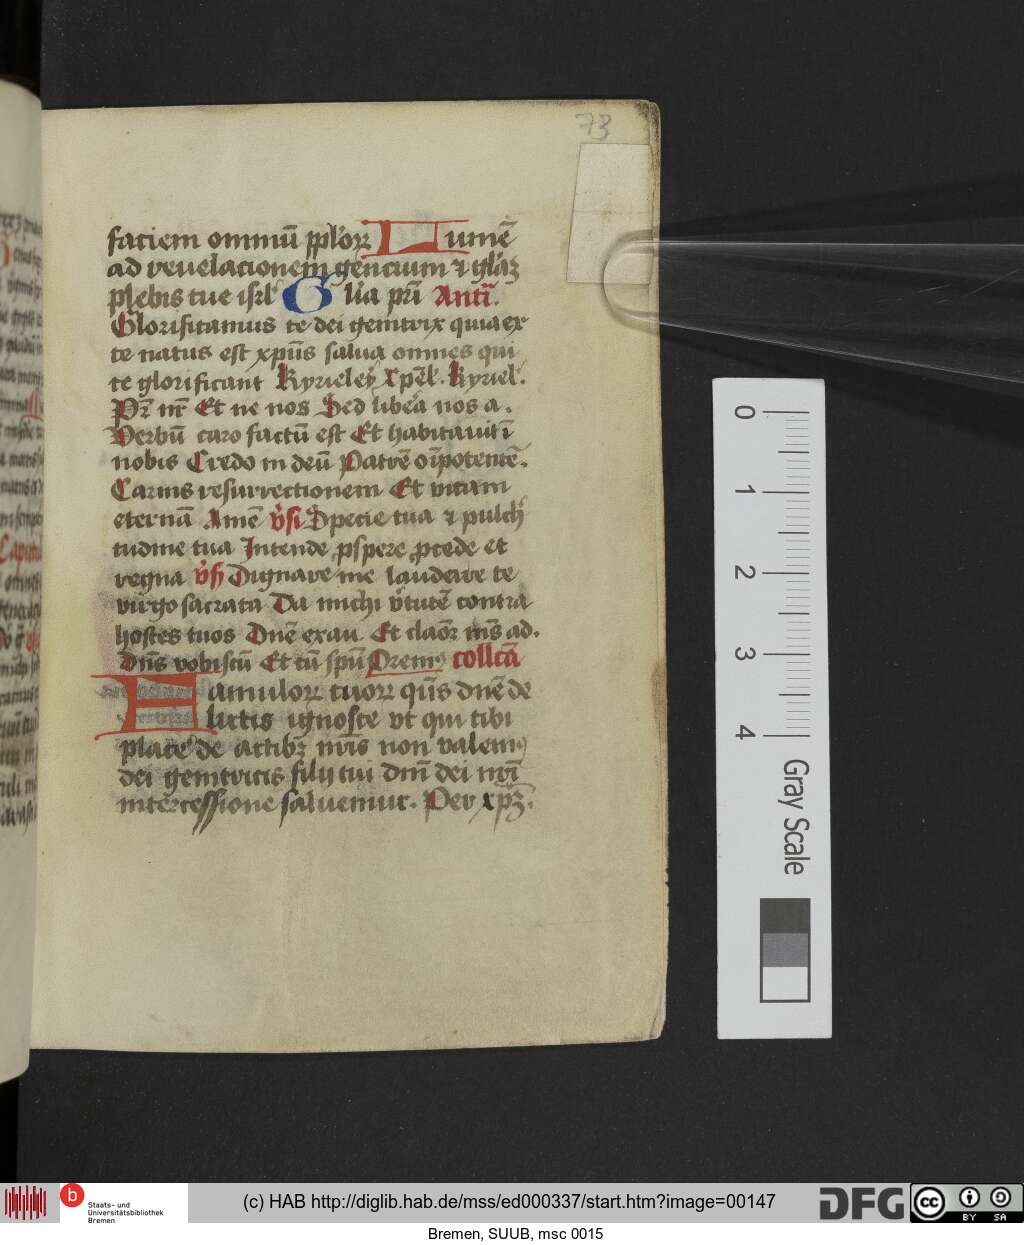 73
faciem omniū pplor̄ Lumē
ad reuelacionem gencium ⁊ glāz
plebis tue isrl' Glīa prī Antī.
Glorificamus te dei genitrix quia ex
te natus est xp̄us salua omnes qui
te glorificant Kyrieley Xpēl'. Kyriel'.
Pr̄ nr̄ Et ne nos Sed libera nos a.
Verbū caro factū est Et habitauit ī
nobis Credo in deū Patrē oīpotentē.
Carnis resurrectionem Et vitam
eternā Amē v̓si Specie tua ⁊ pulch'
tudine tua Intende pspere pcede et
regna v̓si Dignare me laudare te
virgo sacrata Da michi v̓tutē contra
hostes tuos Dnē exau. Et claōr ms̄ ad.
Dn̄s vobiscū Et cū spū Orem9 collcā
Famulor̄ tuor̄ qūs dnē de
lictis ignosce vt qui tibi
place' de actibꝫ nr̄is non valem9
dei genitricis filij tui dnī dei nrī
intercessione saluemur. Per xpꝫ.
0
1
2
3
4
Gray Scale
b Staats- und
Universitätsbibliothek
Bremen
(c) HAB http://diglib.hab.de/mss/ed000337/start.htm?image=00147
DFG
cc BY SA
Bremen, SUUB, msc 0015